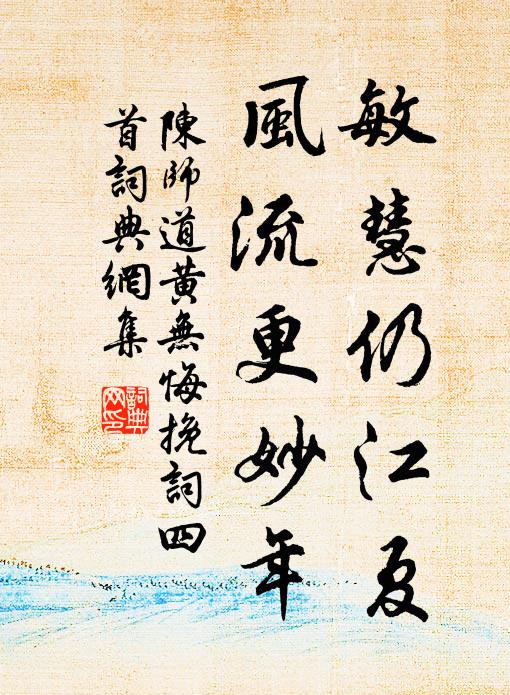 敏慧仍江夏
風流更妙年
陳師道黃無悔挽詞四
首詞典網集
詞典
网印